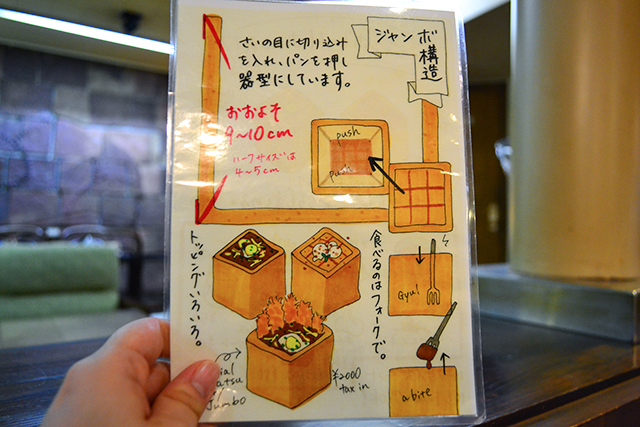 さいの目に切り込み
を入れ、パンを押し
器型にしています。
ジャンボ
構造
おおよそ
9~10cm
ハーフサイズは
4~5cm
push
push
トッピングいろいろ。
食べるのはフォークで。
Gyu!
a bite
Jumbo
¥2000
tax in